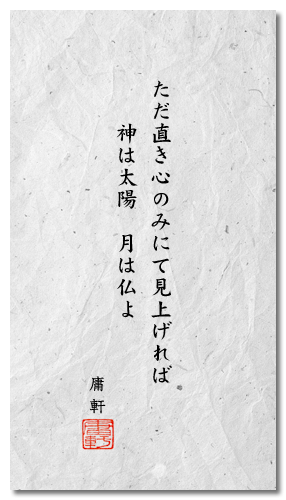 ただ直き心のみにて見上げれば
神は太陽　月は仏よ
庸軒
庸軒